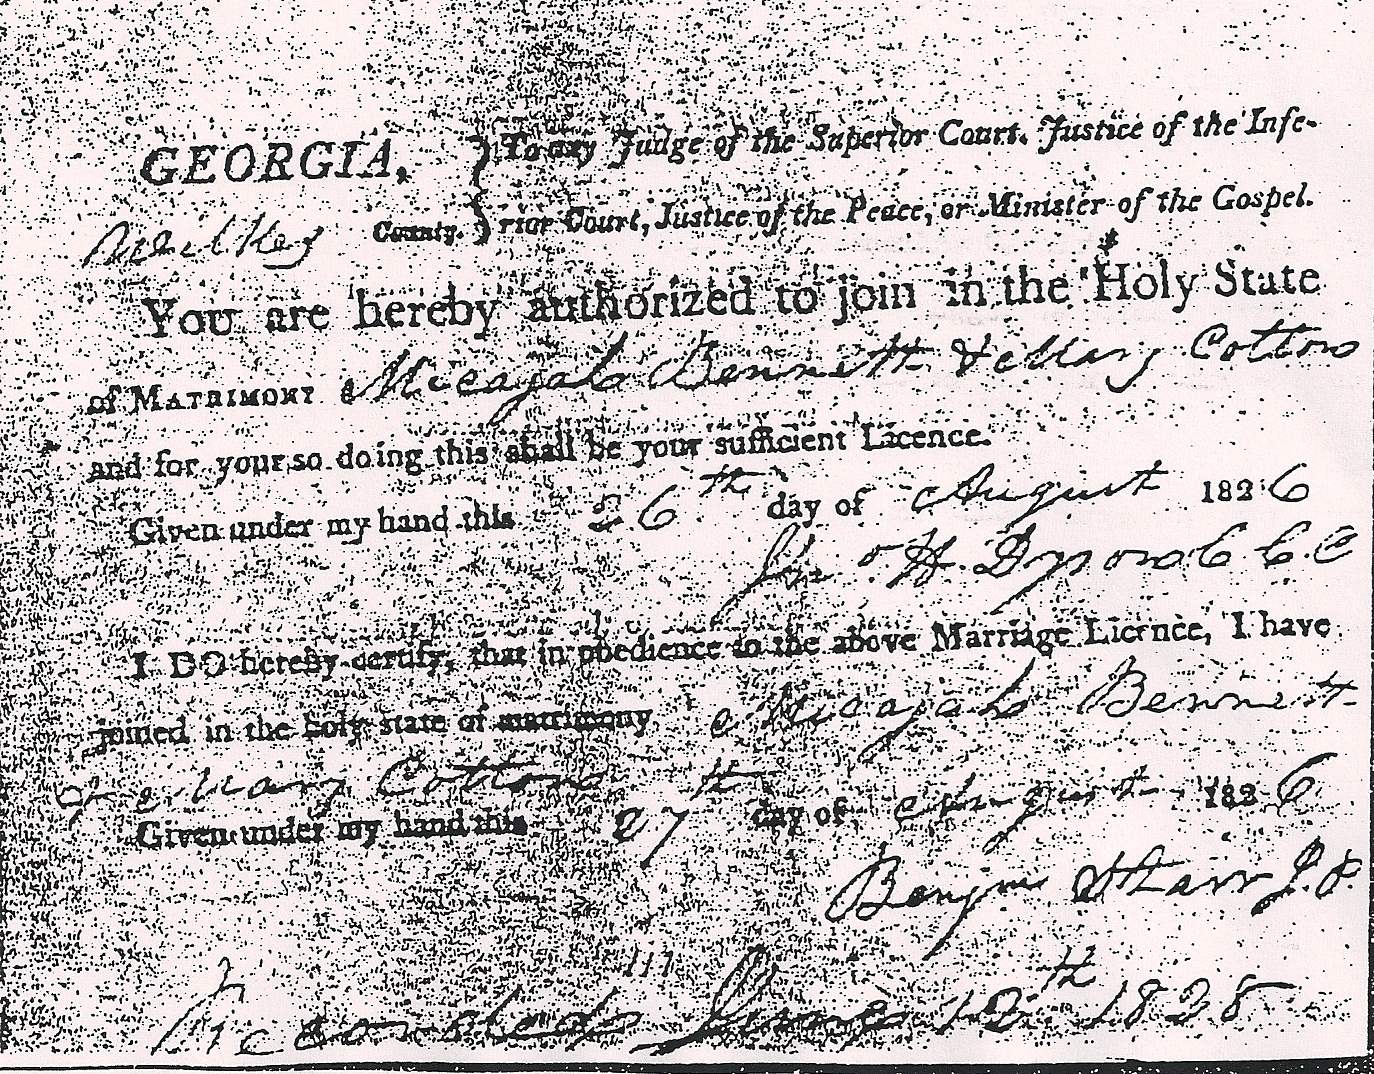 GEORGIA, } To any Judge of the Superior Court. Justice of the Infe-
Wilkes County. } rior Court, Justice of the Peace, or Minister of the Gospel.
You are hereby authorized to join in the Holy State
of MATRIMONY Micajah Bennett & Mary Cotton
and for your so doing this shall be your sufficient Licence.
Given under my hand this 26th day of August 1826
Jno H. Dyson C C O
I DO hereby certify, that in obedience to the above Marriage Licence, I have
joined in the holy state of matrimony Micajah Bennett
& Mary Cotton
Given under my hand this 27th day of August 1826
Benjm Starr J. P.
Recorded June 12th 1828